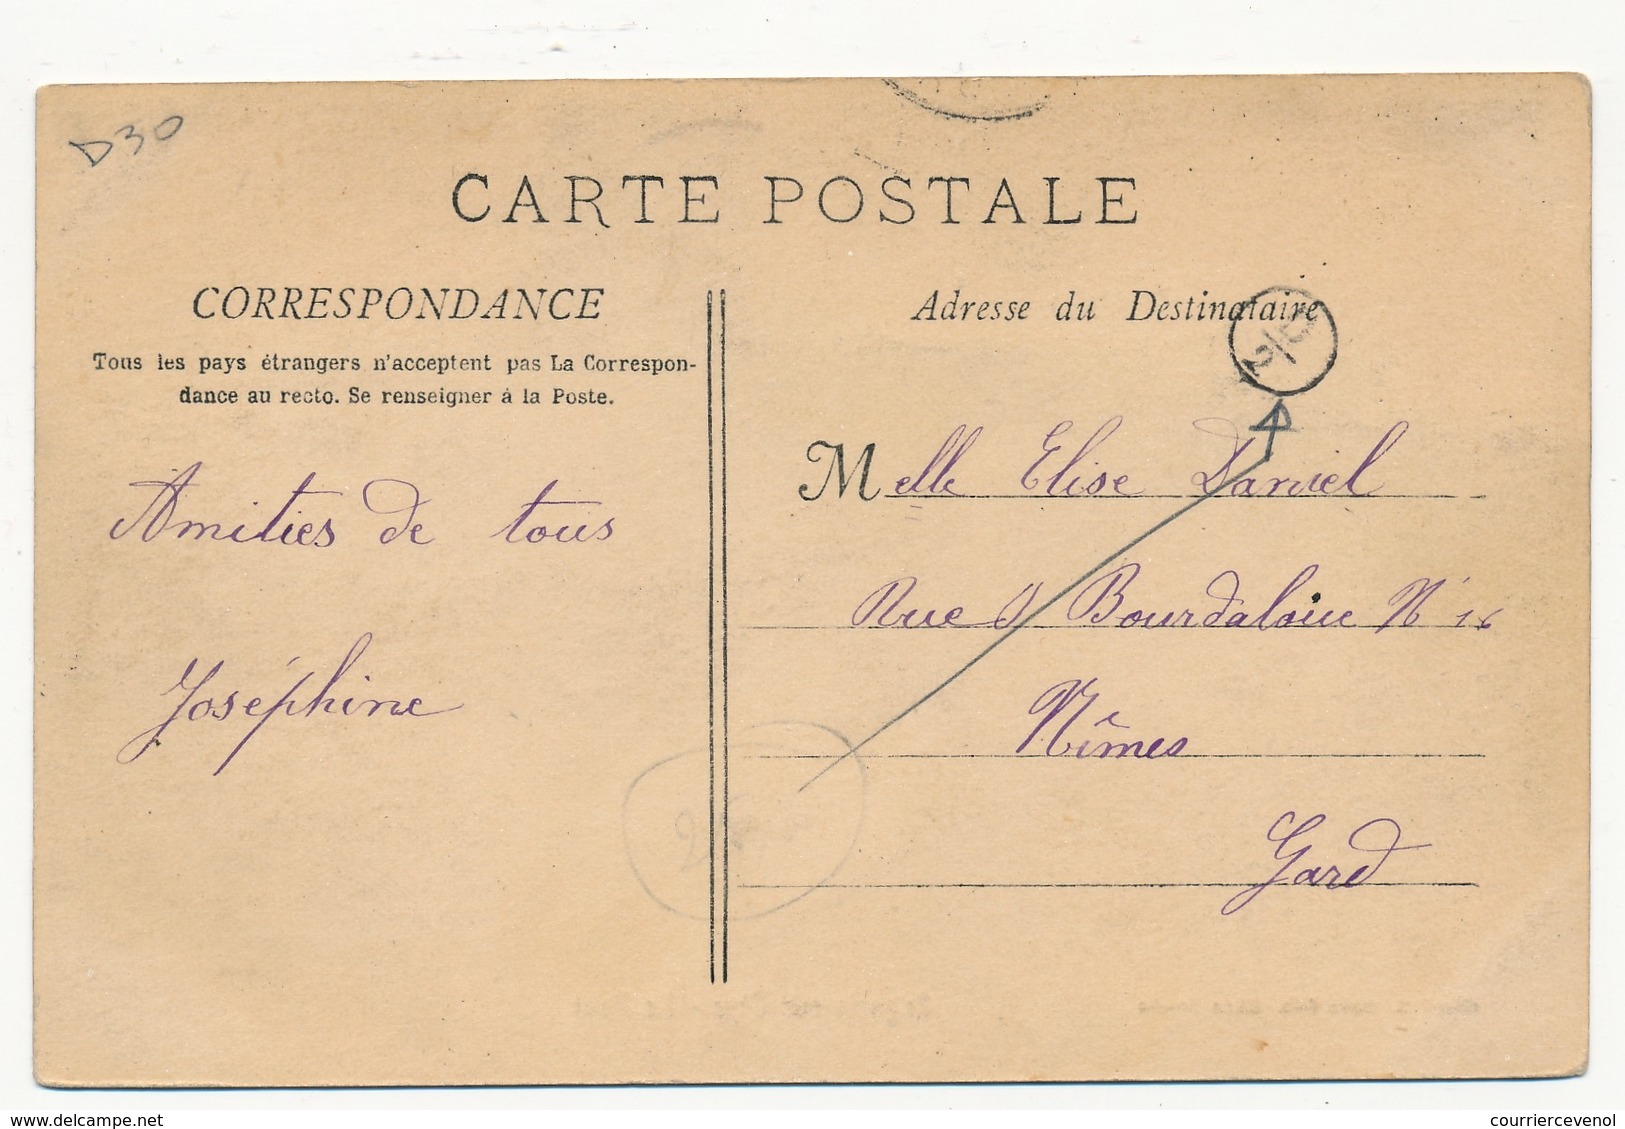 D30
CARTE POSTALE
CORRESPONDANCE
Tous les pays étrangers n'acceptent pas La Correspon-
dance au recto. Se renseigner à la Poste.
Amitiés de tous
Joséphine
Adresse du Destinataire
Melle Elise Daniel
Rue Bourdaloue N° 16
Nîmes
Gard
delcampe.net
courriercevenol